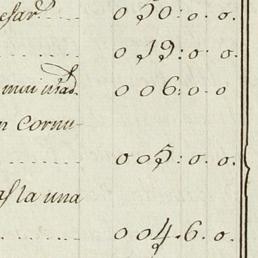 esar 0 50: 0. 0.
0 19: 0. 0.
0 0 6: 0. 0
n cornu-
0 0 5: 0. 0.
asta una
0 0 4. 6. 0.